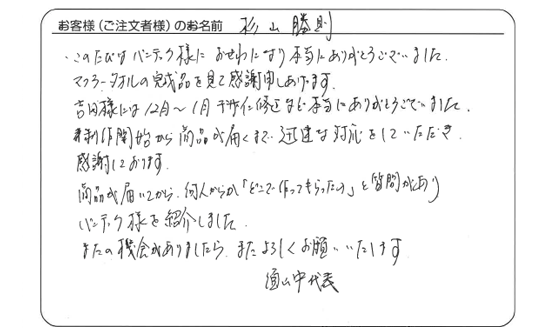 お客様(ご注文者様)のお名前 杉山勝則
・このたびはバンテック様におせわになり本当にありがとうございました。
マフラータオルの完成品を見て感謝申しあげます。
吉田様には12月〜1月デザイン修正など本当にありがとうございました。
制作開始から商品が届くまで迅速な対応をしていただき
感謝しております。
商品が届いてから、何人からか「どこで作ってもらったの」と質問があり
バンテック様を紹介しました。
またの機会がありましたら、またよろしくお願いいたします
山中代表